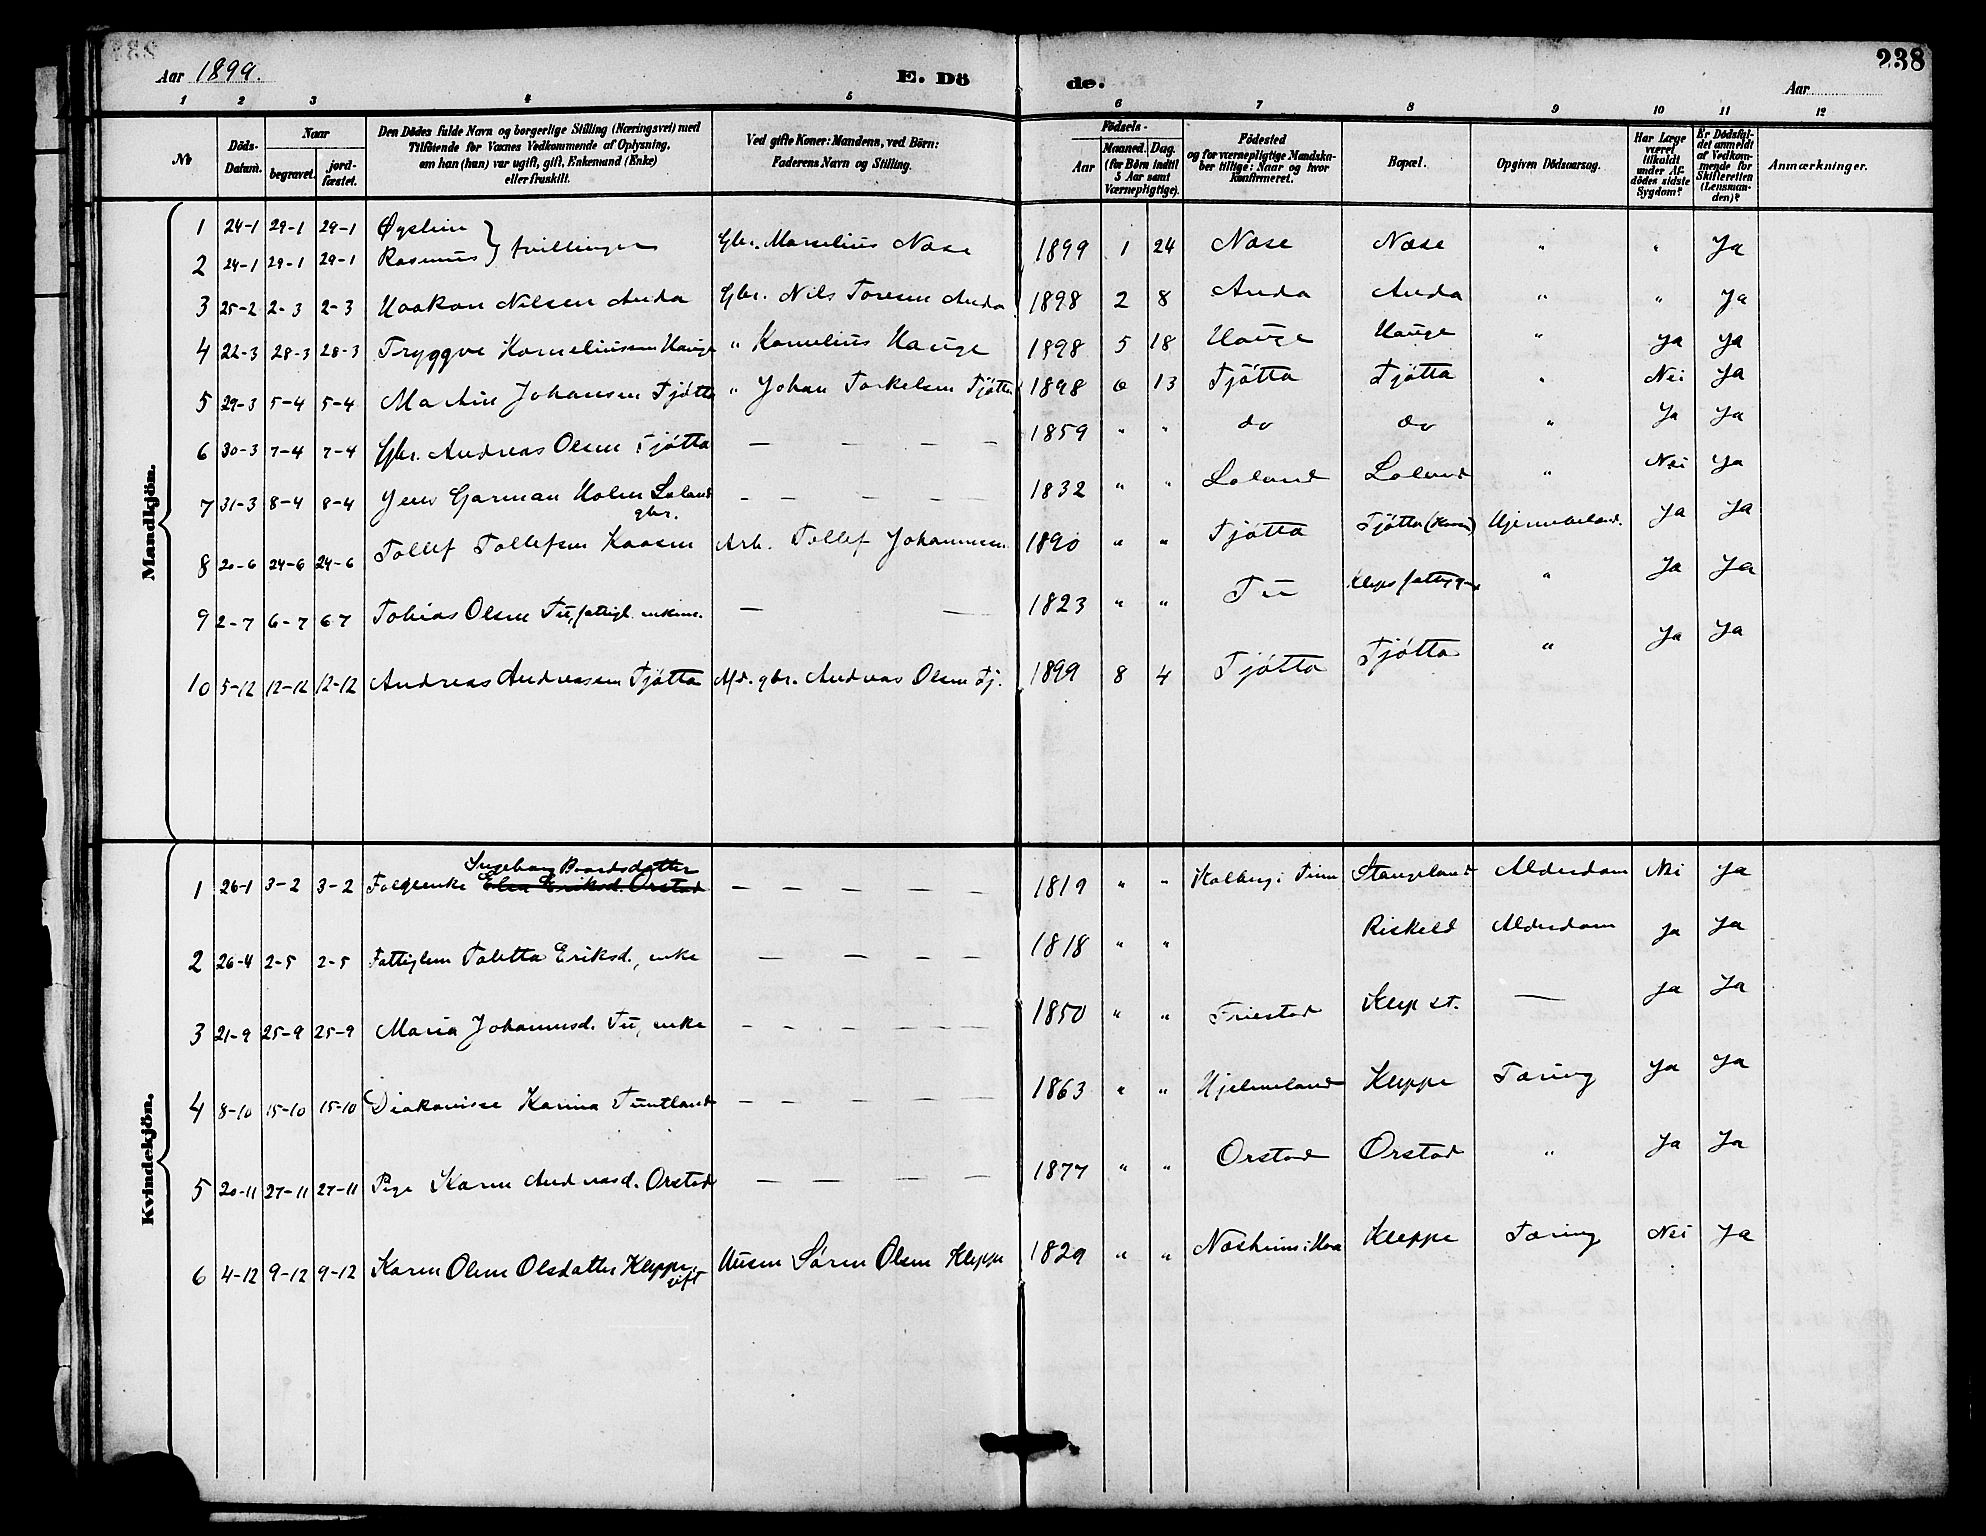 238
Aar 1899.
E. Dö de.
Aar
1 2 3 4 5 6 7 8 9 10 11 12
No
Döds-Datum.
Naar
begravet.
jord-fæstet.
Den Dödes fulde Navn og borgerlige Stilling (Næringsvei) med
Tilföiende for Voxnes Vedkommende af Oplysning,
om han (hun) var ugift, gift, Enkemand (Enke)
eller fraskilt.
Ved gifte Koner: Mandens, ved Börn:
Faderens Navn og Stilling.
Födsels-
Aar
Maaned. Dag.
(for Börn indtil
5 Aar samt
Værnepligtige).
Födested
og for værnepligtige Mandska-
ber tillige: Naar og hvor
Konfirmeret.
Bopæl.
Opgiven Dödsaarsag.
Har Læge
været
tilkaldt
under Af-
dödes sidste
Sygdom?
Er Dödsfal-
det anmeldt
af Vedkom-
mende for
Skifteretten
(Lensman-
den)?
Anmærkninger.
Mandkjön.
1 24-1 29-1 29-1 Øystein } tvillinger Gbr. Marselius Næse 1899 1 24 Næse Næse " " Ja
2 24-1 29-1 29-1 Rasmus
3 25-2 2-3 2-3 Haakon Nilsen Anda Gbr. Nils Toresen Anda 1898 2 8 Anda Anda " " Ja
4 22-3 28-3 28-3 Tryggve Korneliussen Hauge " Kornelius Hauge 1898 5 18 Hauge Hauge " Ja Ja
5 29-3 5-4 5-4 Martin Johansen Tjøtta " Johan Torkelsen Tjøtta 1898 6 13 Tjøtta Tjøtta " Nei Ja
6 30-3 7-4 7-4 Gbr. Andreas Olsen Tjøtta — — — — 1859 " " do do " Ja Ja
7 31-3 8-4 8-4 Jens Garman Holm Laland gbr. — — — — 1832 " " Laland Laland " Nei Ja
8 20-6 24-6 24-6 Tollef Tollefsen Kaasen Arb. Tollef Johannesen 1890 " " Tjøtta Tjøtta Ja Ja
9 2-7 6-7 6-7 Tobias Olsen Tu, fattigl. enkem. — — 1823 " " Tu Klepps " Ja Ja
10 5-12 12-12 12-12 Andreas Andreassen Tjøtta Afd. gbr. Andreas Olsen Tj. 1899 8 4 Tjøtta Tjøtta " Ja Ja
Kvindekjön.
Ingeborg Baardsdatter
1 26-1 3-2 3-2 Folgeenke Elen Eriksd. Orstad — — — — — 1819 " " Kalberg i Time Stangeland Alderdom Nei Ja
2 26-4 2-5 2-5 Fattiglem Taletta Eriksd., enke — — — — 1818 " " Riskeld Alderdom Ja Ja
3 21-9 25-9 25-9 Maria Johannesd. Tu, enke — — — — — — 1850 " " Friestad Klep st. — Ja Ja
4 8-10 15-10 15-10 Diakonisse Karina Tuntland — — — — — 1863 " " Hjelmeland Kleppe Tæring Ja Ja
5 20-11 27-11 27-11 Pige Karen Andreasd. Orstad — — — — — 1877 " " Orstad Orstad " Ja Ja
6 4-12 9-12 9-12 Karen Olene Olsdatter Kleppe, gift Husm Søren Olsen Kleppe 1829 " " Næsheim i Haa Kleppe Tæring Nei Ja